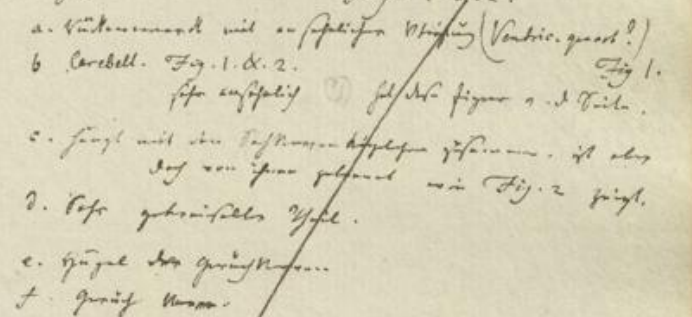 a. Rückenmark mit ansehnlicher Vertiefung (Ventric. quart?)
b Cerebell. Fig. 1. & 2. Fig 1.
sehr ansehnlich diese Figur v. d Seite.
c. hängt mit den Sehnerven zusammen, ist aber
doch von ihnen getrennt wie Fig. 2 zeigt.
d. Sehr Theil.
e. Hügel der Geruchsnerven.
f. Geruch Nerven.